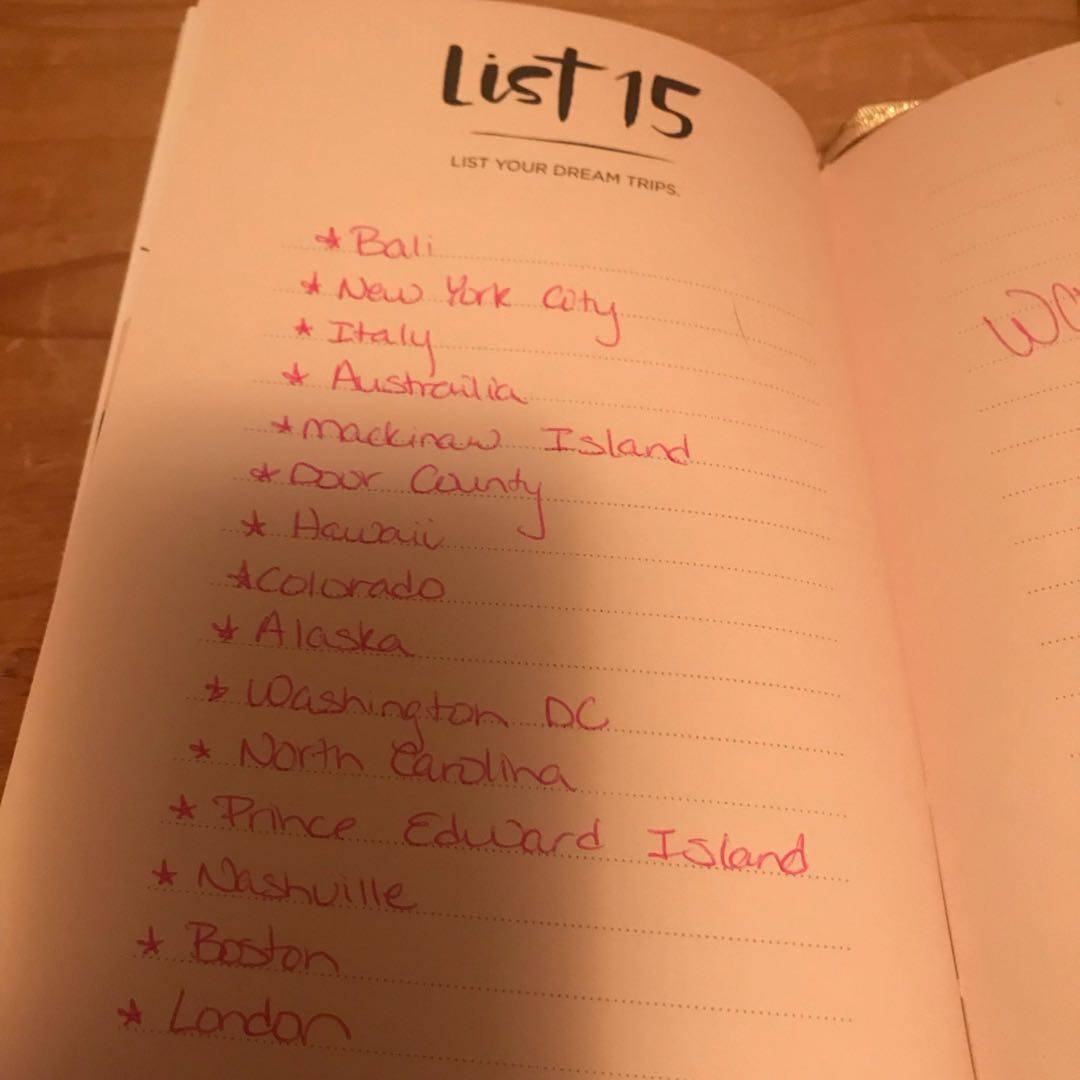 List 15
LIST YOUR DREAM TRIPS.
* Bali
* New York City
* Italy
* Austrailia
* Mackinaw Island
* Door County
* Hawaii
* Colorado
* Alaska
* Washington DC
* North Carolina
* Prince Edward Island
* Nashville
* Boston
* London